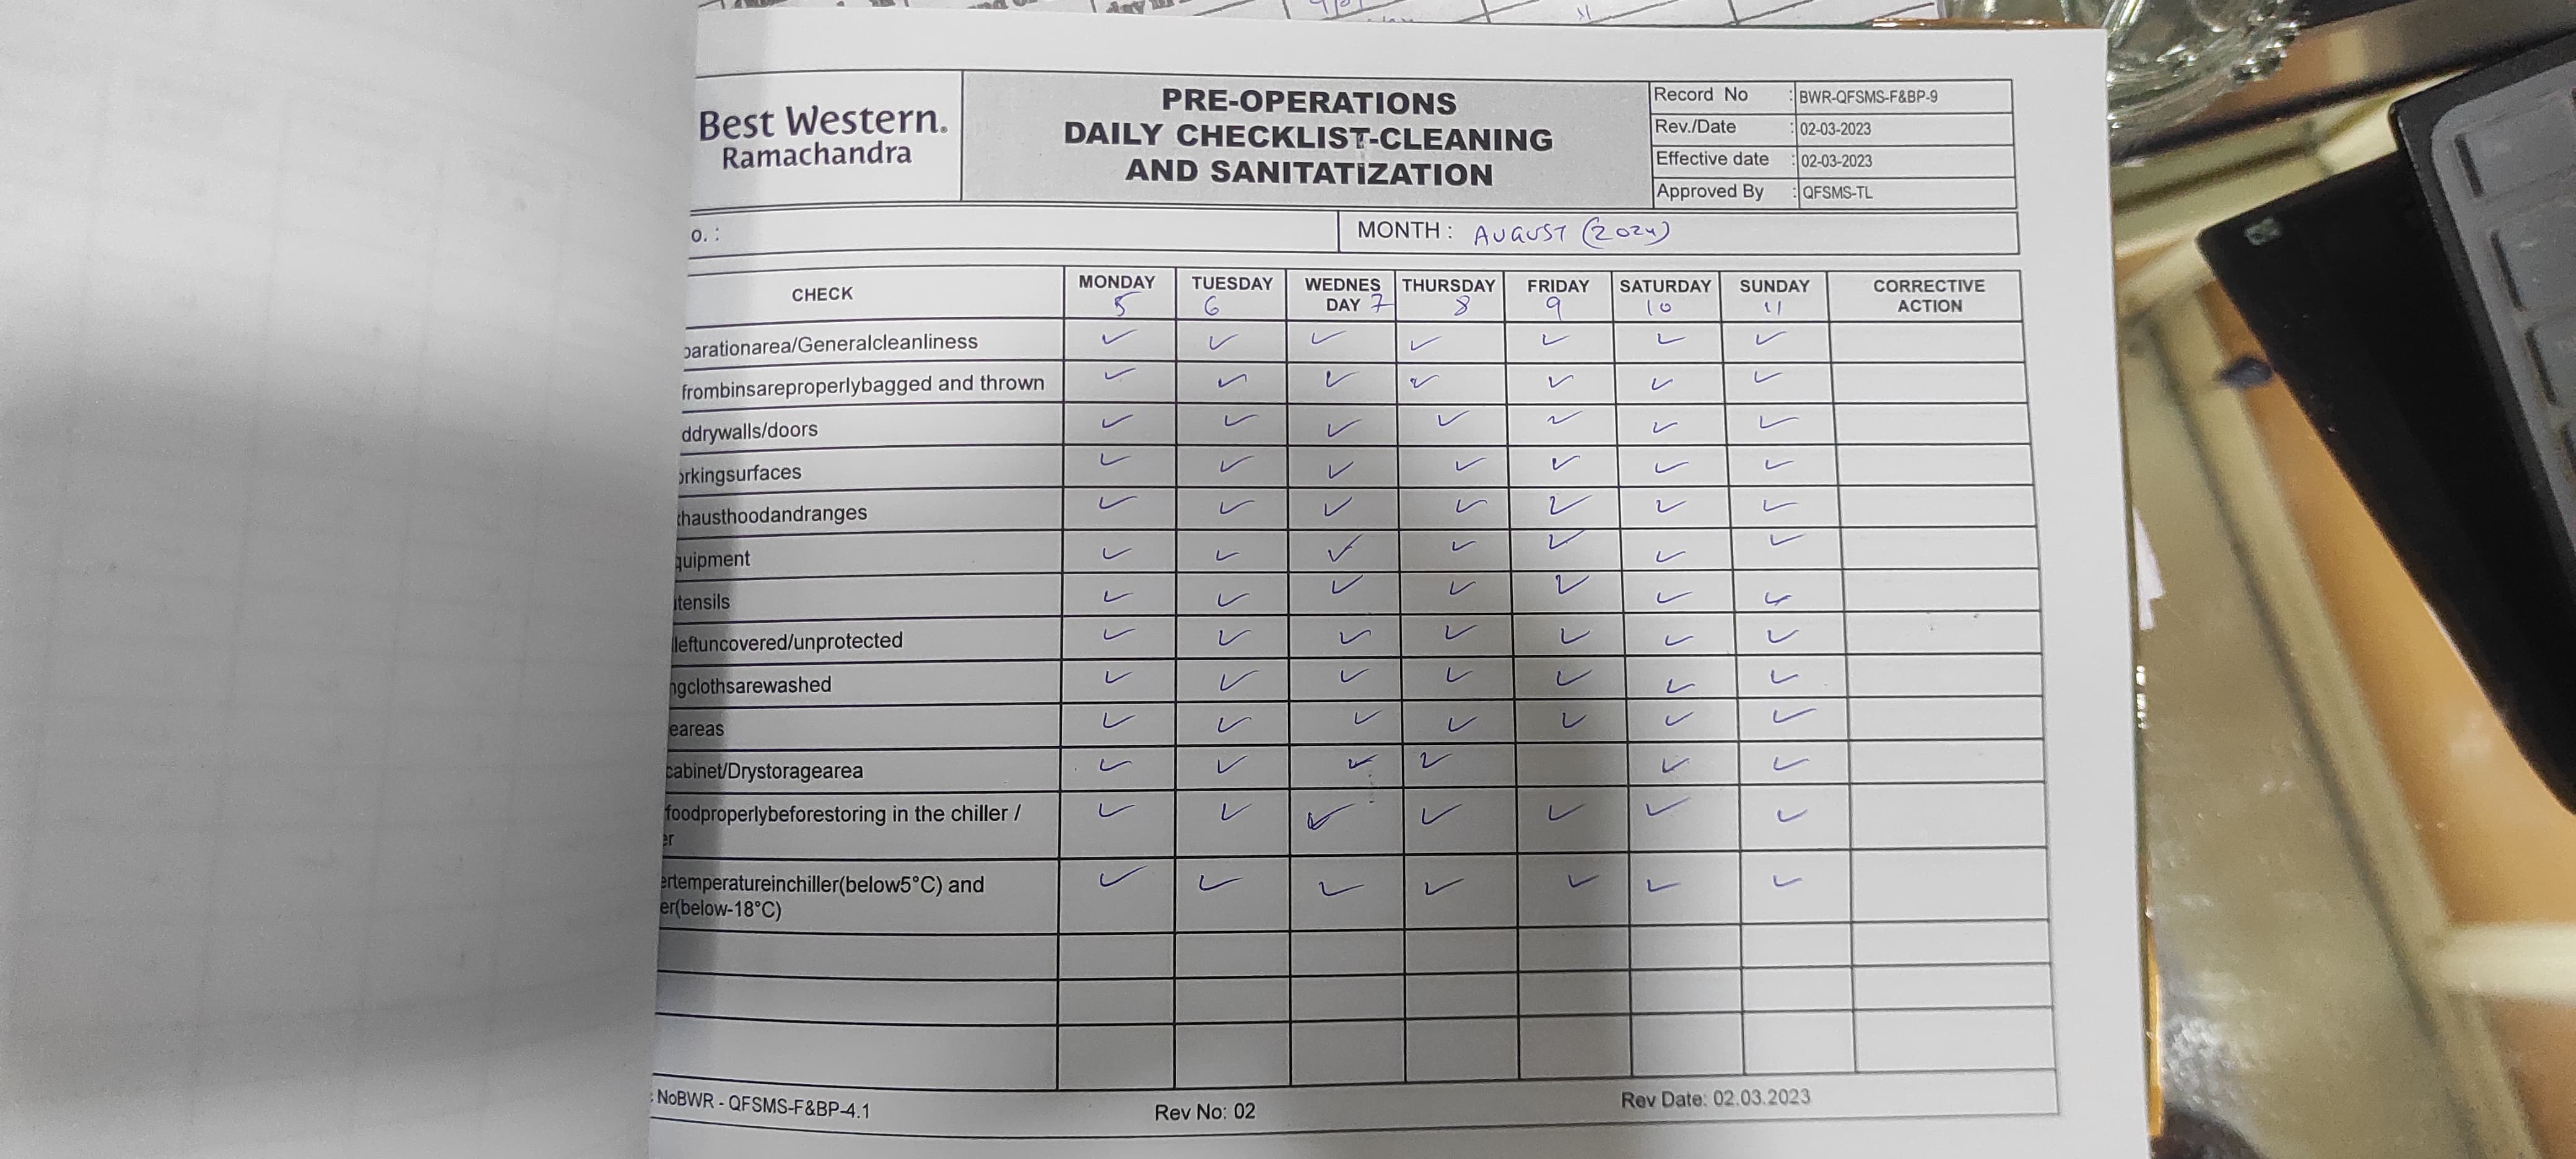 Best Western.
Ramachandra
PRE-OPERATIONS
DAILY CHECKLIST-CLEANING
AND SANITATIZATION
Record No : BWR-QFSMS-F&BP-9
Rev./Date : 02-03-2023
Effective date : 02-03-2023
Approved By : QFSMS-TL
o. :
MONTH : AUGUST (2024)
CHECK MONDAY TUESDAY WEDNES DAY THURSDAY FRIDAY SATURDAY SUNDAY CORRECTIVE ACTION
5 6 7 8 9 10 11
parationarea/Generalcleanliness ✓ ✓ ✓ ✓ ✓ ✓ ✓
frombinsareproperlybagged and thrown ✓ ✓ ✓ ✓ ✓ ✓ ✓
ddrywalls/doors ✓ ✓ ✓ ✓ ✓ ✓ ✓
orkingsurfaces ✓ ✓ ✓ ✓ ✓ ✓ ✓
hausthoodandranges ✓ ✓ ✓ ✓ ✓ ✓ ✓
quipment ✓ ✓ ✓ ✓ ✓ ✓ ✓
tensils ✓ ✓ ✓ ✓ ✓ ✓ ✓
leftuncovered/unprotected ✓ ✓ ✓ ✓ ✓ ✓ ✓
ngclothsarewashed ✓ ✓ ✓ ✓ ✓ ✓ ✓
eareas ✓ ✓ ✓ ✓ ✓ ✓ ✓
cabinet/Drystoragearea ✓ ✓ ✓ ✓ ✓ ✓
foodproperlybeforestoring in the chiller / ✓ ✓ ✓ ✓ ✓ ✓ ✓
er
ertemperatureinchiller(below5°C) and ✓ ✓ ✓ ✓ ✓ ✓ ✓
er(below-18°C)
: NoBWR - QFSMS-F&BP-4.1 Rev No: 02 Rev Date: 02.03.2023